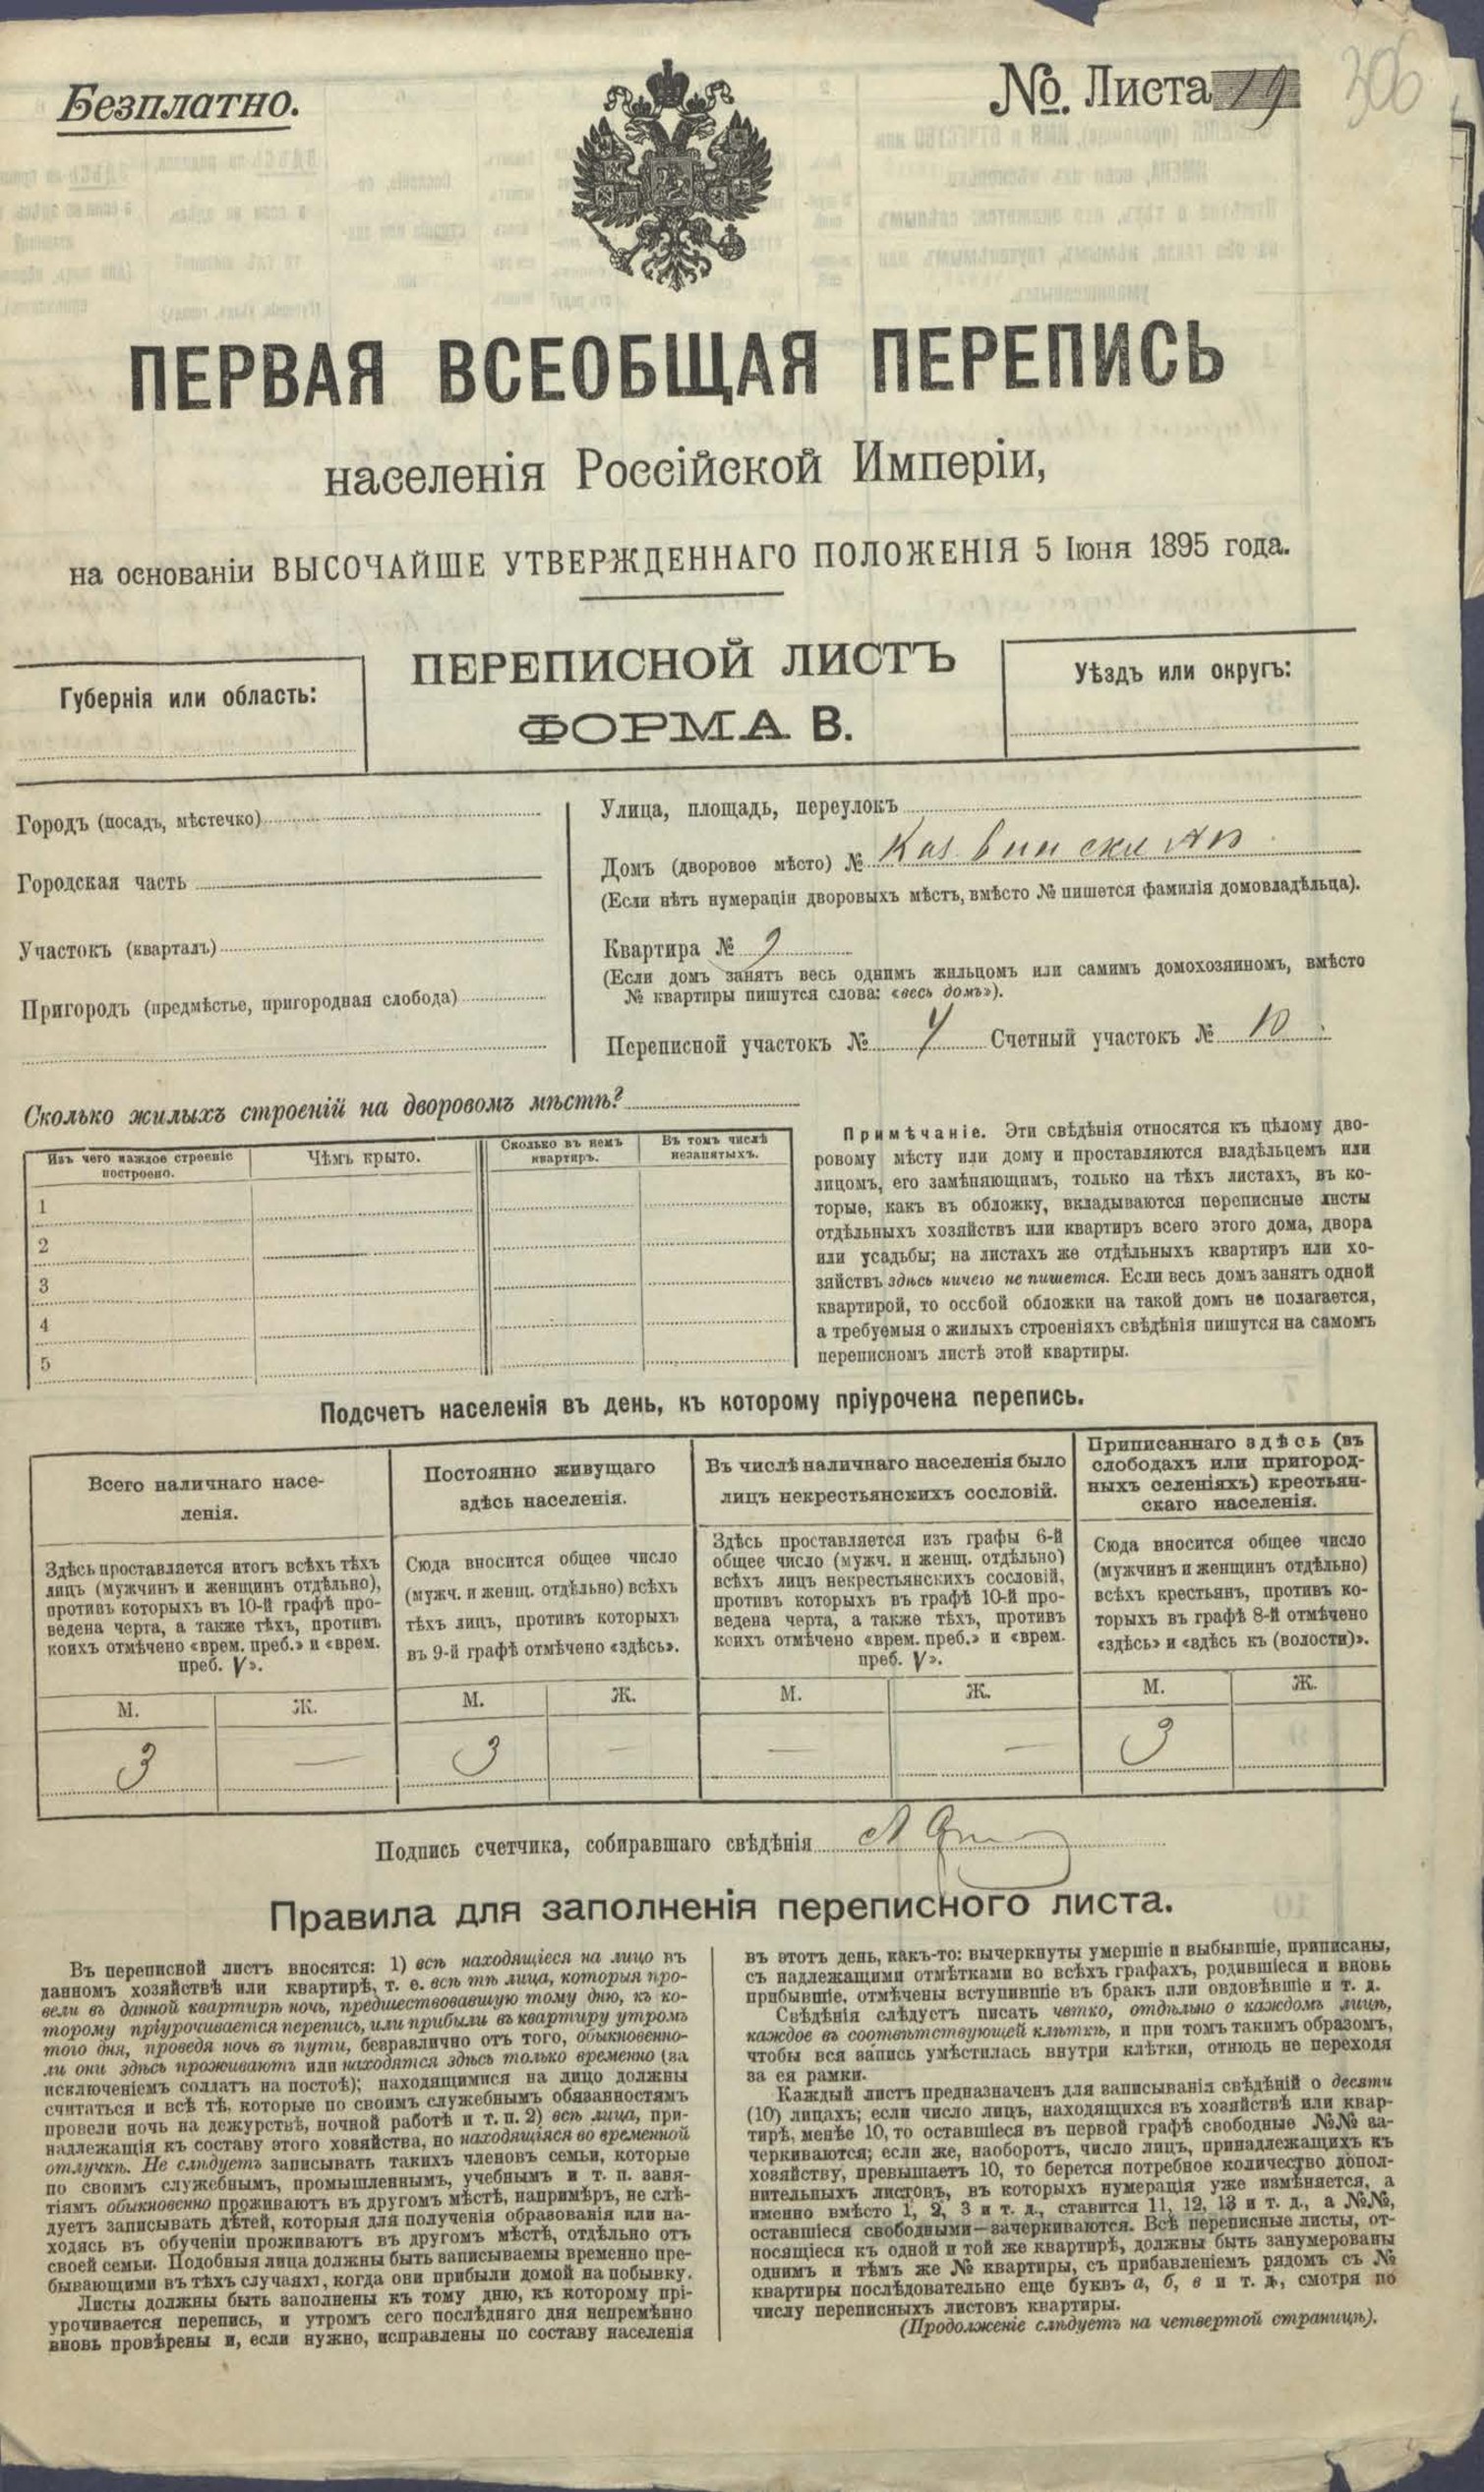 Безплатно.
№. Листа 19
306
ПЕРВАЯ ВСЕОБЩАЯ ПЕРЕПИСЬ
населенія Россійской Имперіи,
на основаніи ВЫСОЧАЙШЕ УТВЕРЖДЕННАГО ПОЛОЖЕНІЯ 5 Іюня 1895 года.
Губернія или область:
ПЕРЕПИСНОЙ ЛИСТЪ
ФОРМА В.
Уѣздъ или округъ:
Городъ (посадъ, мѣстечко)
Городская часть
Участокъ (кварталъ)
Пригородъ (предмѣстье, пригородная слобода)
Улица, площадь, переулокъ
Домъ (дворовое мѣсто) №
(Если нѣтъ нумераціи дворовыхъ мѣстъ, вмѣсто № пишется фамилія домовладѣльца).
Квартира № 9
(Если домъ занятъ весь однимъ жильцомъ или самимъ домохозяиномъ, вмѣсто
№ квартиры пишутся слова: «весь домъ»).
Переписной участокъ № 4 Счетный участокъ № 10
Сколько жилыхъ строеній на дворовомъ мѣстѣ?
Изъ чего каждое строеніе
построено.
Чѣмъ крыто.
Сколько въ немъ
квартиръ.
Въ томъ числѣ
незанятыхъ.
1
2
3
4
5
Примѣчаніе. Эти свѣдѣнія относятся къ цѣлому дво-
ровому мѣсту или дому и проставляются владѣльцемъ или
лицомъ, его замѣняющимъ, только на тѣхъ листахъ, въ ко-
торые, какъ въ обложку, вкладываются переписные листы
отдѣльныхъ хозяйствъ или квартиръ всего этого дома, двора
или усадьбы; на листахъ же отдѣльныхъ квартиръ или хо-
зяйствъ здѣсь ничего не пишется. Если весь домъ занятъ одной
квартирой, то особой обложки на такой домъ не полагается,
а требуемыя о жилыхъ строеніяхъ свѣдѣнія пишутся на самомъ
переписномъ листѣ этой квартиры.
Подсчетъ населенія въ день, къ которому пріурочена перепись.
Всего наличнаго насе-
ленія.
Постоянно живущаго
здѣсь населенія.
Въ числѣ наличнаго населенія было
лицъ некрестьянскихъ сословій.
Приписаннаго здѣсь (въ
слободахъ или пригород-
ныхъ селеніяхъ) крестьян-
скаго населенія.
Здѣсь проставляется итогъ всѣхъ тѣхъ
лицъ (мужчинъ и женщинъ отдѣльно),
противъ которыхъ въ 10-й графѣ про-
ведена черта, а также тѣхъ, противъ
коихъ отмѣчено «врем. преб.» и «врем.
преб. V».
Сюда вносится общее число
(мужч. и женщ. отдѣльно) всѣхъ
тѣхъ лицъ, противъ которыхъ
въ 9-й графѣ отмѣчено «здѣсь».
Здѣсь проставляется изъ графы 6-й
общее число (мужч. и женщ. отдѣльно)
всѣхъ лицъ некрестьянскихъ сословій,
противъ которыхъ въ графѣ 10-й про-
ведена черта, а также тѣхъ, противъ
коихъ отмѣчено «врем. преб.» и «врем.
преб. V».
Сюда вносится общее число
(мужчинъ и женщинъ отдѣльно)
всѣхъ крестьянъ, противъ ко-
торыхъ въ графѣ 8-й отмѣчено
«здѣсь» и «здѣсь къ (волости)».
М. Ж. М. Ж. М. Ж. М. Ж.
3 — 3 — — — 3
Подпись счетчика, собиравшаго свѣдѣнія
Правила для заполненія переписного листа.
Въ переписной листъ вносятся: 1) всѣ находящіеся на лицо въ
данномъ хозяйствѣ или квартирѣ, т. е. всѣ тѣ лица, которыя про-
вели въ данной квартирѣ ночь, предшествовавшую тому дню, къ ко-
торому пріурочивается перепись, или прибыли въ квартиру утромъ
того дня, проведя ночь въ пути, безразлично отъ того, обыкновенно-
ли они здѣсь проживаютъ или находятся здѣсь только временно (за
исключеніемъ солдатъ на постоѣ); находящимися на лицо должны
считаться и всѣ тѣ, которые по своимъ служебнымъ обязанностямъ
провели ночь на дежурствѣ, ночной работѣ и т. п. 2) всѣ лица, при-
надлежащія къ составу этого хозяйства, но находящіяся во временной
отлучкѣ. Не слѣдуетъ записывать такихъ членовъ семьи, которые
по своимъ служебнымъ, промышленнымъ, учебнымъ и т. п. заня-
тіямъ обыкновенно проживаютъ въ другомъ мѣстѣ, напримѣръ, не слѣ-
дуетъ записывать дѣтей, которыя для полученія образованія или на-
ходясь въ обученіи проживаютъ въ другомъ мѣстѣ, отдѣльно отъ
своей семьи. Подобныя лица должны быть записываемы временно пре-
бывающими въ тѣхъ случаяхъ, когда они прибыли домой на побывку.
Листы должны быть заполнены къ тому дню, къ которому прі-
урочивается перепись, и утромъ сего послѣдняго дня непремѣнно
вновь провѣрены и, если нужно, исправлены по составу населенія
въ этотъ день, какъ-то: вычеркнуты умершіе и выбывшіе, приписаны,
съ надлежащими отмѣтками во всѣхъ графахъ, родившіеся и вновь
прибывшіе, отмѣчены вступившіе въ бракъ или овдовѣвшіе и т. д.
Свѣдѣнія слѣдуетъ писать четко, отдѣльно о каждомъ лицѣ,
каждое въ соотвѣтствующей клѣткѣ, и при томъ такимъ образомъ,
чтобы вся запись умѣстилась внутри клѣтки, отнюдь не переходя
за ея рамки.
Каждый листъ предназначенъ для записыванія свѣдѣній о десяти
(10) лицахъ; если число лицъ, находящихся въ хозяйствѣ или квар-
тирѣ, менѣе 10, то оставшіеся въ первой графѣ свободные №№ за-
черкиваются; если же, наоборотъ, число лицъ, принадлежащихъ къ
хозяйству, превышаетъ 10, то берется потребное количество допол-
нительныхъ листовъ, въ которыхъ нумерація уже измѣняется, а
именно вмѣсто 1, 2, 3 и т. д., ставится 11, 12, 13 и т. д., а №№,
оставшіеся свободными—зачеркиваются. Всѣ переписные листы, от-
носящіеся къ одной и той же квартирѣ, должны быть занумерованы
однимъ и тѣмъ же № квартиры, съ прибавленіемъ рядомъ съ №
квартиры послѣдовательно еще буквъ а, б, в и т. д., смотря по
числу переписныхъ листовъ квартиры.
(Продолженіе слѣдуетъ на четвертой страницѣ).